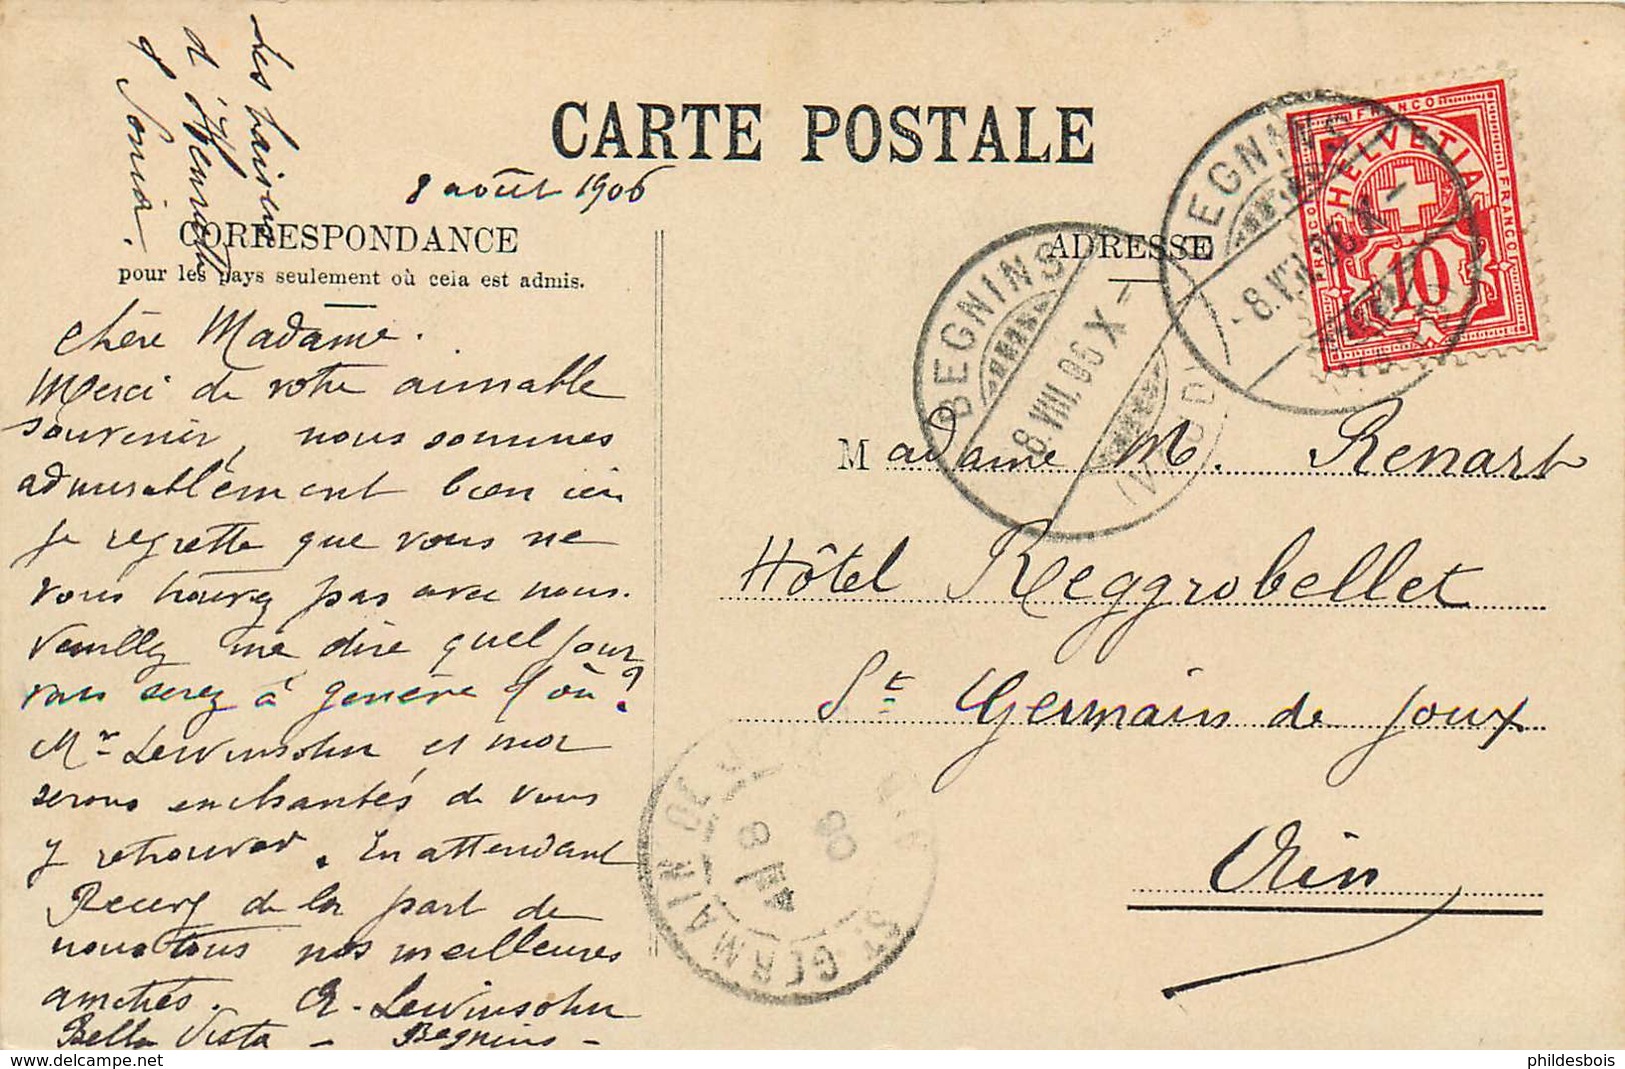 Les baisers
d'Hennoch
& Sonia.
CARTE POSTALE
8 août 1906
CORRESPONDANCE
pour les pays seulement où cela est admis.
ADRESSE
chère Madame.
Merci de votre aimable
souvenir, nous sommes
admirablement bien ici
je regrette que vous ne
vous trouvez pas avec nous.
Veuillez me dire quel jour
vous serez à genève & où?
Mr Lewinsohn et moi
serons enchantés de vous
y retrouver. En attendant
Recevez de la part de
nous tous nos meilleures
amitiés. R. Lewinsohn
Bella Vista - Begnins -
Madame M. Renart
Hôtel Reggrobellet
St Germain de Joux
Ain
BEGNINS
8.VIII.06 X-
(VAUD)
BEGNINS
-8.VIII.06 X-
FRANCO
HELVETIA
FRANCO
FRANCO
10
ST GERMAIN DE JOUX
AIN
9
06
delcampe.net
phildesbois